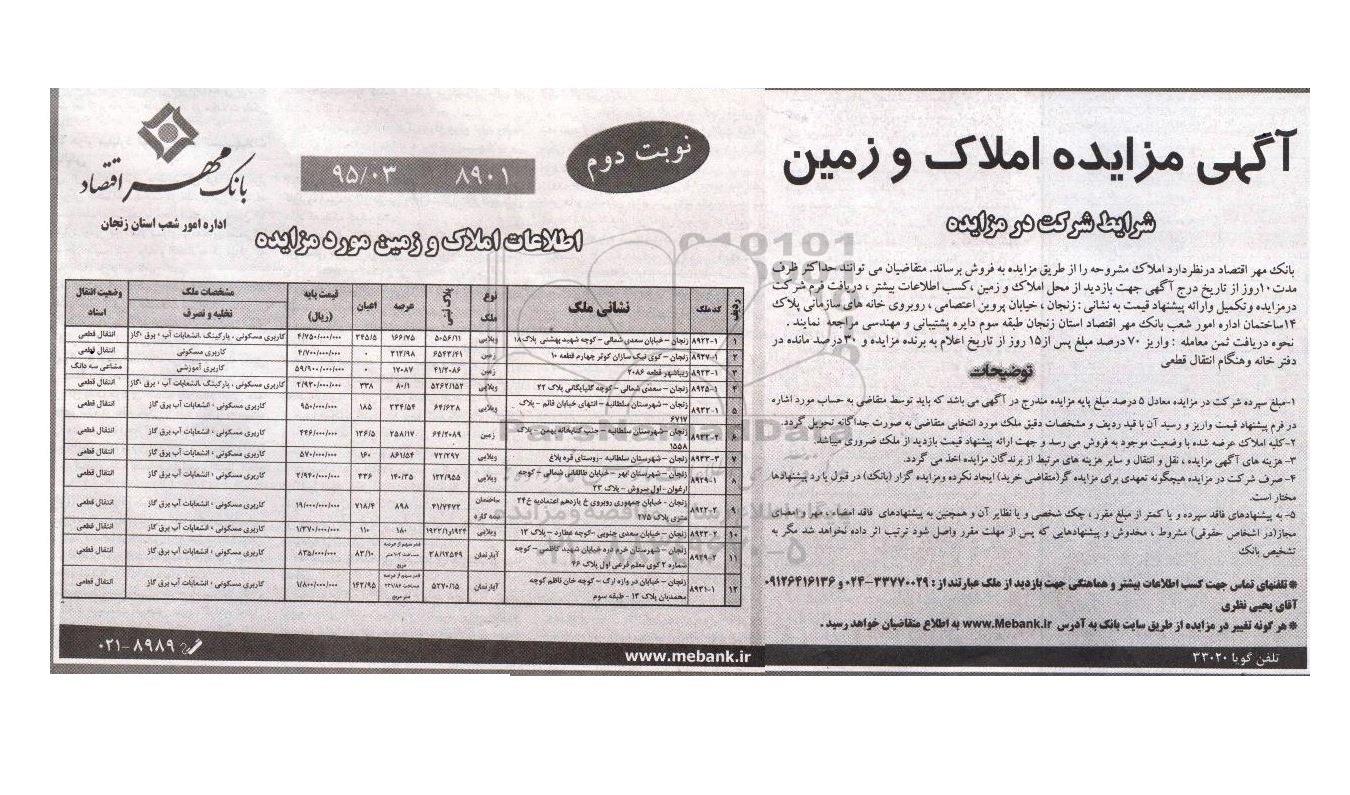 آگهی مزایده املاک و زمین
شرایط شرکت در مزایده
بانک مهر اقتصاد درنظردارد املاک مشروحه را از طریق مزایده به فروش برساند. متقاضیان می توانند حداکثر ظرف
مدت ۱۰روز از تاریخ درج آگهی جهت بازدید از محل املاک و زمین ،کسب اطلاعات بیشتر ، دریافت فرم شرکت
درمزایده وتکمیل وارائه پیشنهاد قیمت به نشانی : زنجان ، خیابان پروین اعتصامی ، روبروی خانه های سازمانی پلاک
۱۴ساختمان اداره امور شعب بانک مهر اقتصاد استان زنجان طبقه سوم دایره پشتیبانی و مهندسی مراجعه نمایند .
نحوه دریافت ثمن معامله : واریز ۷۰ درصد مبلغ پس از۱۵ روز از تاریخ اعلام به برنده مزایده و ۳۰ درصد مانده در
دفتر خانه وهنگام انتقال قطعی
توضیحات
۱-مبلغ سپرده شرکت در مزایده معادل ۵ درصد مبلغ پایه مزایده مندرج در آگهی می باشد که باید توسط متقاضی به حساب مورد اشاره
در فرم پیشنهاد قیمت واریز و رسید آن با قید ردیف و مشخصات دقیق ملک مورد انتخابی متقاضی به صورت جداگانه تحویل گردد .
۲-کلیه املاک عرضه شده با وضعیت موجود به فروش می رسد و جهت ارائه پیشنهاد قیمت بازدید از ملک ضروری میباشد.
۳- هزینه های آگهی مزایده ، نقل و انتقال و سایر هزینه های مرتبط از برندگان مزایده اخذ می گردد.
۴- صرف شرکت در مزایده هیچگونه تعهدی برای مزایده گر(متقاضی خرید) ایجاد نکرده ومزایده گزار (بانک) در قبول یا رد پیشنهادها
مختار است.
۵- به پیشنهادهای فاقد سپرده و یا کمتر از مبلغ مقرر ، چک شخصی و یا نظایر آن و همچنین به پیشنهادهای فاقد امضاء، مهر و امضای
مجاز(در اشخاص حقوقی) مشروط ، مخدوش و پیشنهادهایی که پس از مهلت مقرر واصل شود ترتیب اثر داده نخواهد شد مگر به
تشخیص بانک
*تلفنهای تماس جهت کسب اطلاعات بیشتر و هماهنگی جهت بازدید از ملک عبارتند از : ۳۳۷۷۰۰۲۹-۰۲۴ و ۰۹۱۲۶۴۱۶۱۳۶
آقای یحیی نظری
*هر گونه تغییر در مزایده از طریق سایت بانک به آدرس www.Mebank.ir به اطلاع متقاضیان خواهد رسید .
تلفن گویا ۳۳۰۲۰
نوبت دوم
۸۹۰۱ ۹۵/۰۳
بانک مهر اقتصاد
اداره امور شعب استان زنجان
اطلاعات املاک و زمین مورد مزایده
ردیف کد ملک نشانی ملک نوع ملک پلاک ثبتی عرصه اعیان قیمت پایه (ریال) مشخصات ملک تخلیه و تصرف وضعیت انتقال اسناد
۱ ۸۹۲۲-۱ زنجان – خیابان سعدی شمالی – کوچه شهید بهشتی پلاک ۱۸ ویلایی ۵۰۵۶/۱۱ ۱۶۶/۷۵ ۲۴۵/۵ ۴/۷۵۰/۰۰۰/۰۰۰ کاربری مسکونی ، پارکینگ ،انشعابات آب ، برق ،گاز انتقال قطعی
۲ ۸۹۲۷-۱ زنجان – کوی نیک سازان کوثر چهارم قطعه ۱۰ زمین ۶۵۴۳/۴۱ ۲۱۲/۹۸ ۰ ۴/۷۰۰/۰۰۰/۰۰۰ کاربری مسکونی انتقال قطعی
۳ ۸۹۲۳-۱ زیباشهر قطعه ۲۰۸۶ زمین ۴۱/۲۰۸۶ ۱۷۰۸۷ ۰ ۵۹/۹۰۰/۰۰۰/۰۰۰ کاربری آموزشی مشاعی سه دانگ
۴ ۸۹۲۵-۱ زنجان – سعدی شمالی – کوچه گلپایگانی پلاک ۲۲ ویلایی ۵۲۶۲/۱۵۲ ۸۰/۱ ۲۳۸ ۲/۹۲۰/۰۰۰/۰۰۰ کاربری مسکونی ، پارکینگ ،انشعابات آب ، برق ،گاز انتقال قطعی
۵ ۸۹۳۲-۱ زنجان – شهرستان سلطانیه – انتهای خیابان قائم – پلاک ۶۷۱۷ ویلایی ۶۴/۶۳۸ ۲۳۴/۵۴ ۱۸۵ ۹۵۰/۰۰۰/۰۰۰ کاربری مسکونی ، انشعابات آب برق گاز انتقال قطعی
۸ ۸۹۳۲-۲ زنجان – شهرستان سلطانیه – جنب کتابخانه بهمن – پلاک ۱۵۵۸ زمین ۶۴/۲۰۸۹ ۲۵۸/۱۷ ۱۳۶/۵ ۴۴۶/۰۰۰/۰۰۰ کاربری مسکونی ، انشعابات آب برق گاز انتقال قطعی
۷ ۸۹۳۲-۳ زنجان – شهرستان سلطانیه –روستای قره بلاغ ویلایی ۷۲/۲۹۷ ۸۶۱/۵۴ ۱۶۰ ۵۷۰/۰۰۰/۰۰۰ کاربری مسکونی ، انشعابات آب برق گاز انتقال قطعی
۸ ۸۹۲۹-۱ زنجان – شهرستان ابهر – خیابان طالقانی شمالی – کوچه ارغوان – اول سروش – پلاک ۲۳ ویلایی ۱۲۲/۹۵۵ ۱۴۰/۳۵ ۴۳۶ ۲/۹۴۰/۰۰۰/۰۰۰ کاربری مسکونی ، انشعابات آب برق گاز انتقال قطعی
۹ ۸۹۲۲-۲ زنجان – خیابان جمهوری روبروی خ یازدهم اعتمادیه خ۲۴ متری پلاک ۲۷۵ ساختمان نیمه کاره ۴۱/۷۴۷۲ ۸۹۸ ۷۱۸/۴ ۱۹/۰۰۰/۰۰۰/۰۰۰ کاربری مسکونی ، انشعابات آب برق گاز انتقال قطعی
۱۰ ۸۹۲۲-۲ زنجان – خیابان سعدی جنوبی –کوچه عطارد – پلاک ۱۳ ویلایی ۱۹۲۴و۱۹۲۲/۱ ۱۸۰ ۱۱۰ ۱/۳۷۰/۰۰۰/۰۰۰ کاربری مسکونی ، انشعابات آب برق گاز انتقال قطعی
۱۱ ۸۹۲۹-۲ زنجان – شهرستان خرم دره خیابان شهید کاظمی – کوچه شماره ۲ کوی معلم فرعی اول پلاک ۴۶ آپارتمان ۳۸/۱۲۵۴۹ قدر سهم از عرصه ۸۲/۱۰ ۸۳۵/۰۰۰/۰۰۰ کاربری مسکونی ، انشعابات آب برق گاز انتقال قطعی
۱۲ ۸۹۳۱-۱ زنجان – خیابان در وازه ارک – کوچه خان ناظم کوچه محمدیان پلاک ۱۳ – طبقه سوم آپارتمان ۵۲۷۰/۱۵ قدر سهم از عرصه ۱۴۲/۹۵ ۱/۸۰۰/۰۰۰/۰۰۰ کاربری مسکونی ، انشعابات آب برق گاز انتقال قطعی
www.mebank.ir
۰۲۱-۸۹۸۹